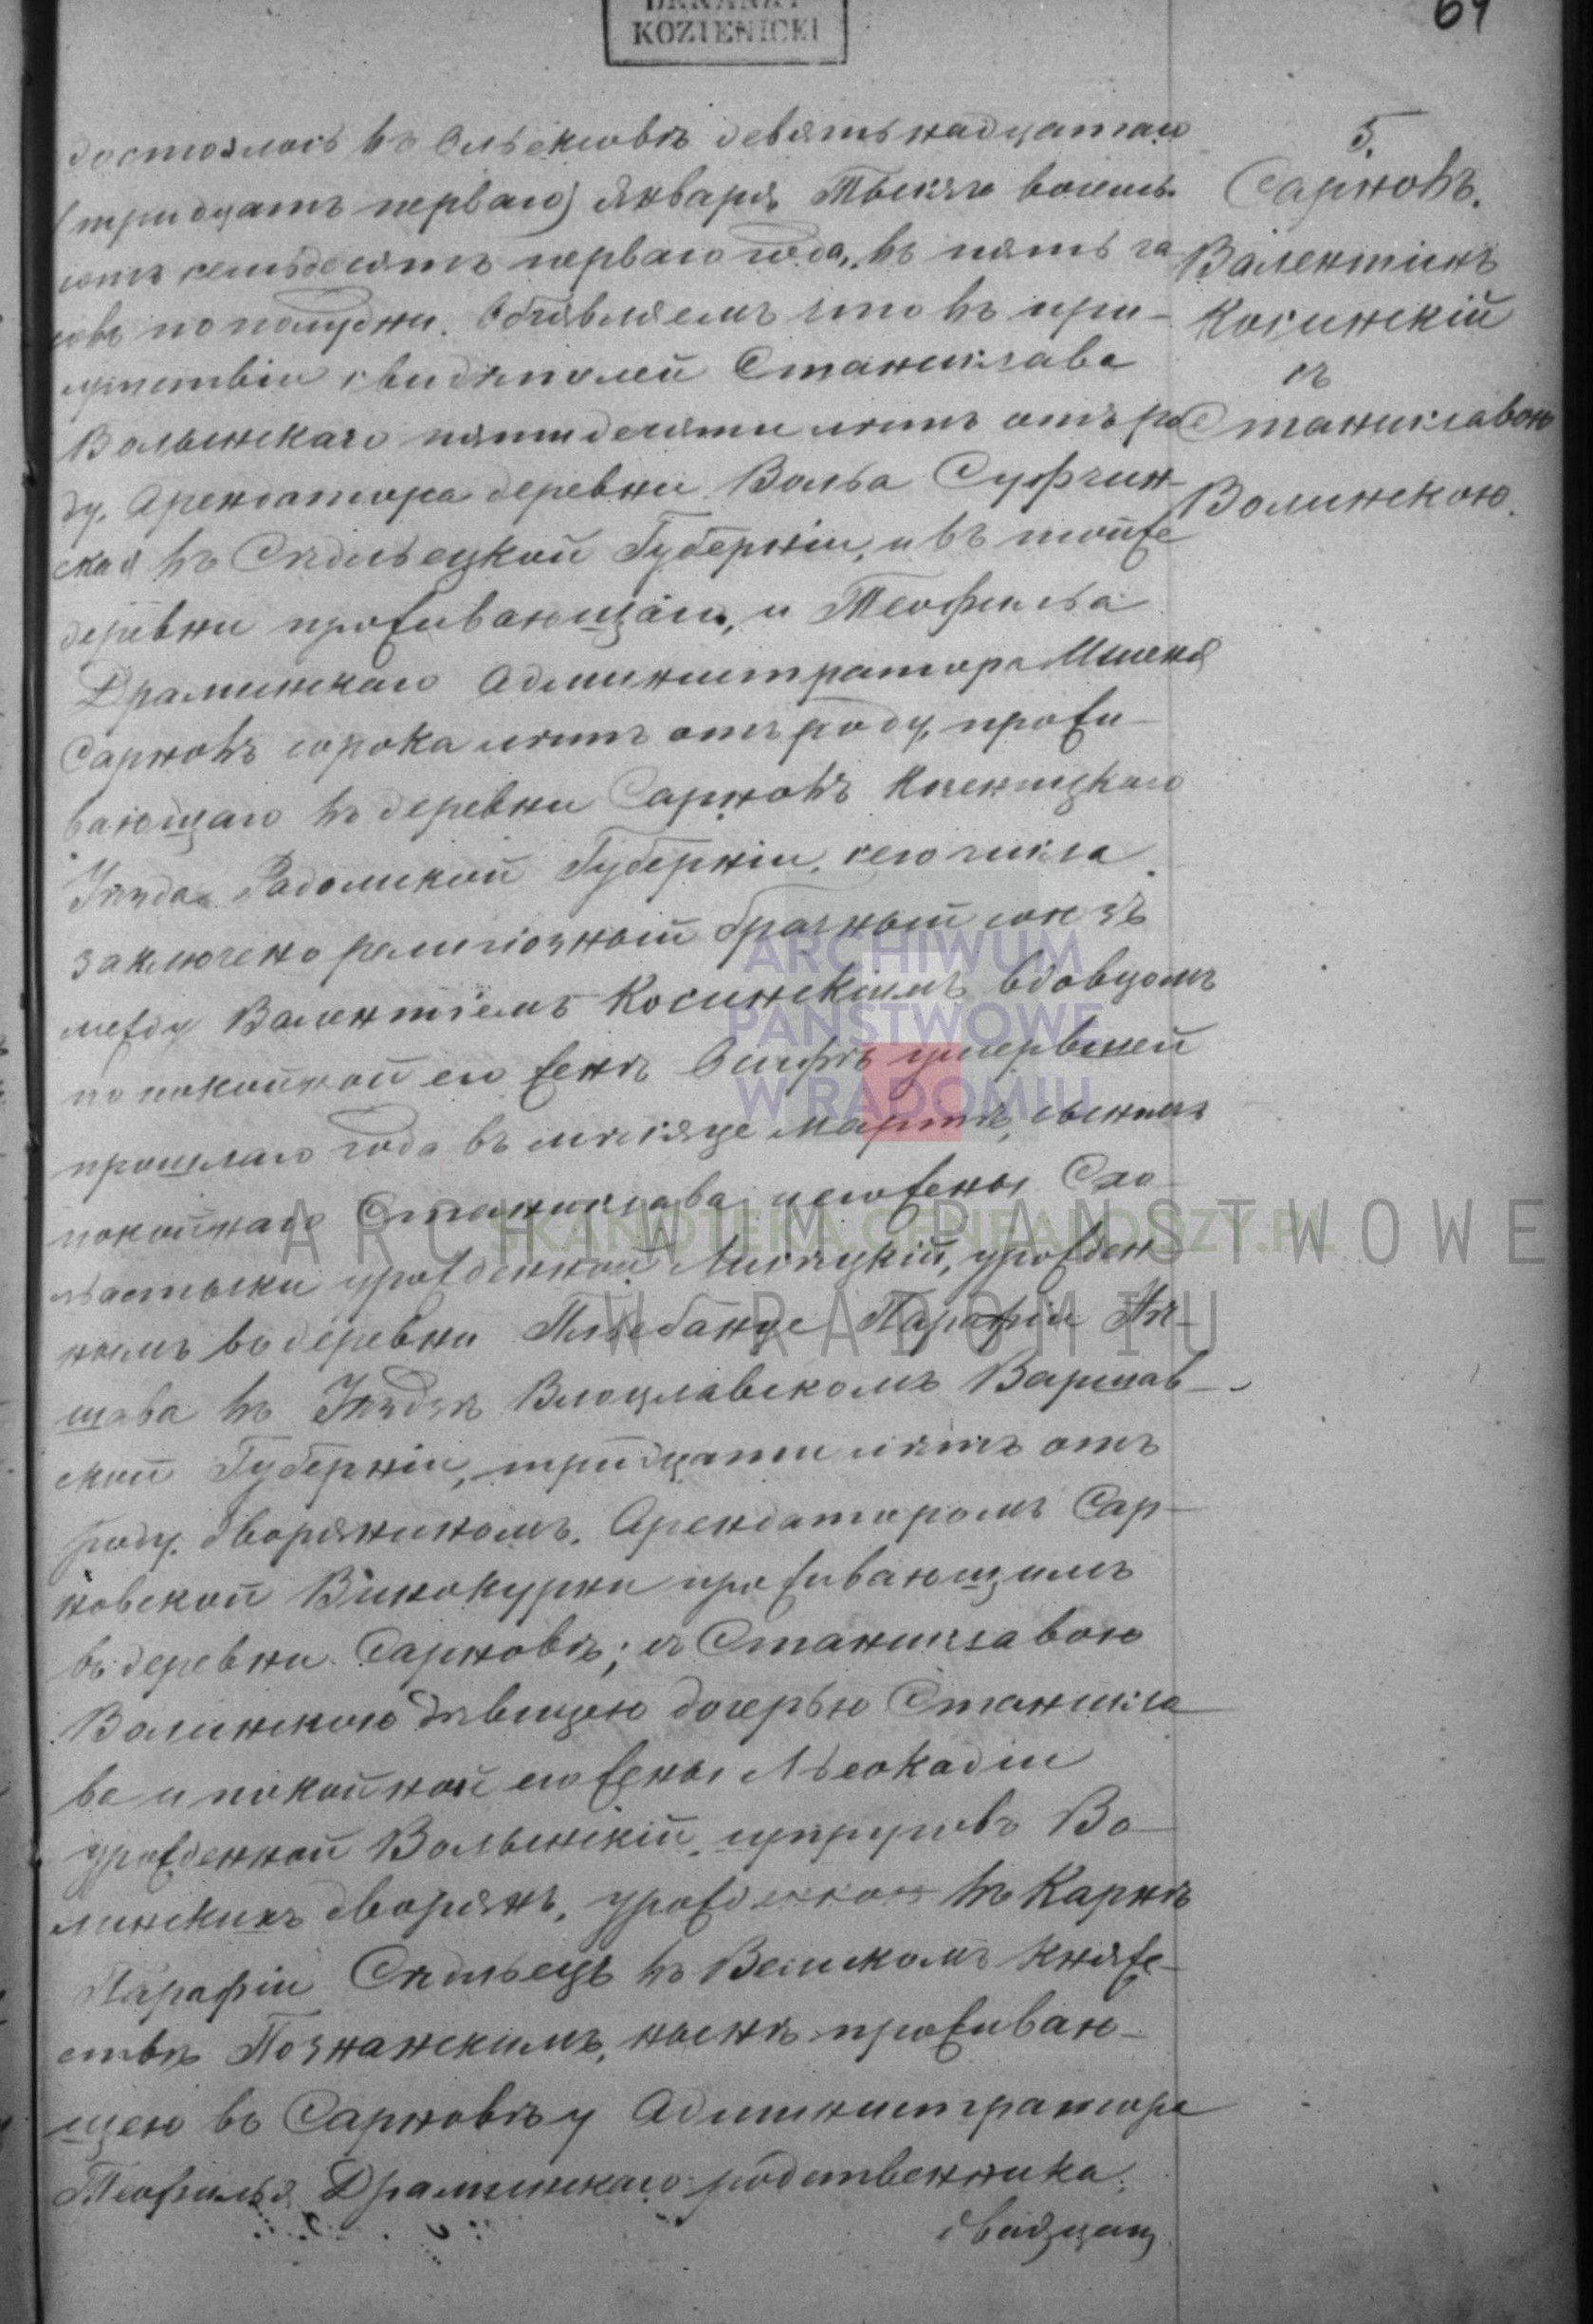 DEKANAT
KOZIENICKI
64
5.
Сарновъ.
Валентинъ
Косинскій
съ
Станиславою
Волинскою.
состоялось въ Ольексовѣ девятьнадцатаго
(тридцать перваго) Января Тысяча восемь
сотъ семьдесятъ перваго года, въ пять ча
совъ пополудни. Объявляемъ что въ при-
сутствіи свидѣтелей Станислава
Волынскаго пятидесяти лѣтъ отъ ро
ду, Арендатора деревни Волья Суфчин-
ская въ Сѣдльецкой Губерніи, и въ тойже
деревни проживающаго, и Теофилья
Драминскаго Администратора Имѣнія
Сарновъ сорока лѣтъ отъ роду, прожи-
вающаго въ деревни Сарновъ Козеницкаго
Уѣзда Радомской Губерніи, сего числа
заключено религіозный брачный союзъ
между Валентіемъ Косинскимъ вдовцомъ
по покойной его женѣ умершей
прошлаго года въ мѣсяце Мартѣ, сыномъ
покойнаго Станислава и его жены Схо-
льастыки урожденной урожден
нымъ въ деревни Пльебанце Парафіи
шава въ Уѣздѣ Влоцлавскомъ Варшав-
ской Губерніи, тридцати лѣтъ отъ
роду, дворяниномъ, Арендаторомъ Сар-
новской Винокурни проживающимъ
въ деревни Сарновѣ; съ Станиславою
Волинскою дѣвицею дочерью Станисла
ва и покойной его жены Льеокадіи
урожденной Волынскій, супруговъ Во-
линскихъ дворянъ, урожденною въ Карнѣ
Парафіи Сѣдльецъ въ Великомъ Княже-
ствѣ Познанскимъ, нынѣ проживаю-
щею въ Сарновѣ у Администратора
Теофилья Драминскаго родственника,
двадцать
ARCHIWUM
PAŃSTWOWE
W RADOMIU
SKANOTEKA.GENEALODZY.PL
ARCHIWUM PAŃSTWOWE
W RADOMIU